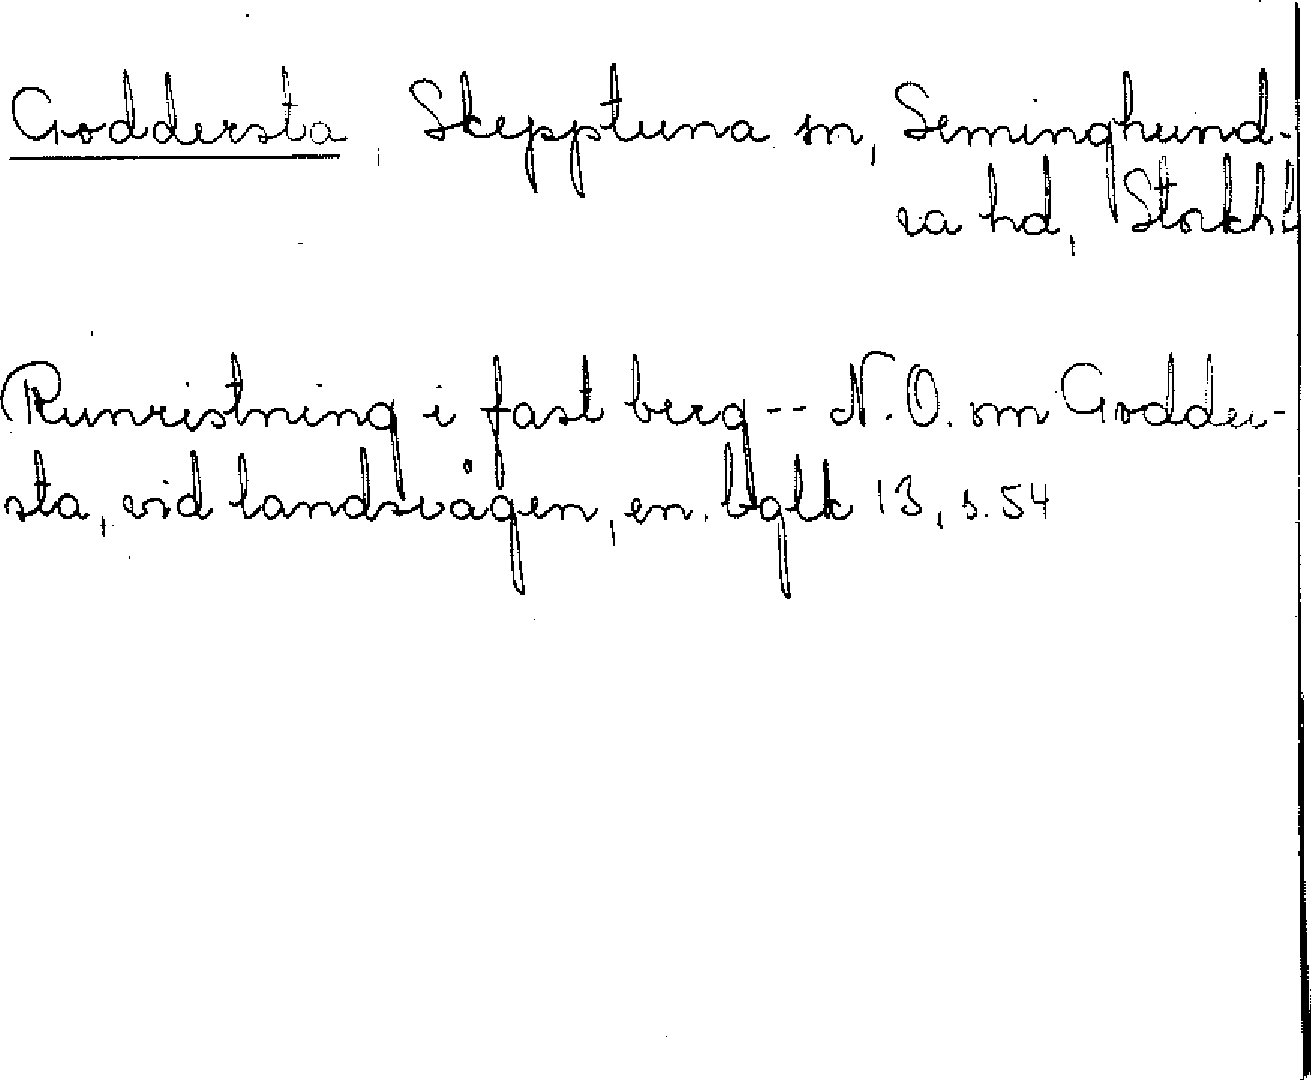 Goddersta, Skepptuna sn, Seminghund-
ra hd, Stockh.
Runristning i fast berg -- N.O. om Godder-
sta, vid landsvägen, en.
13, s. 54